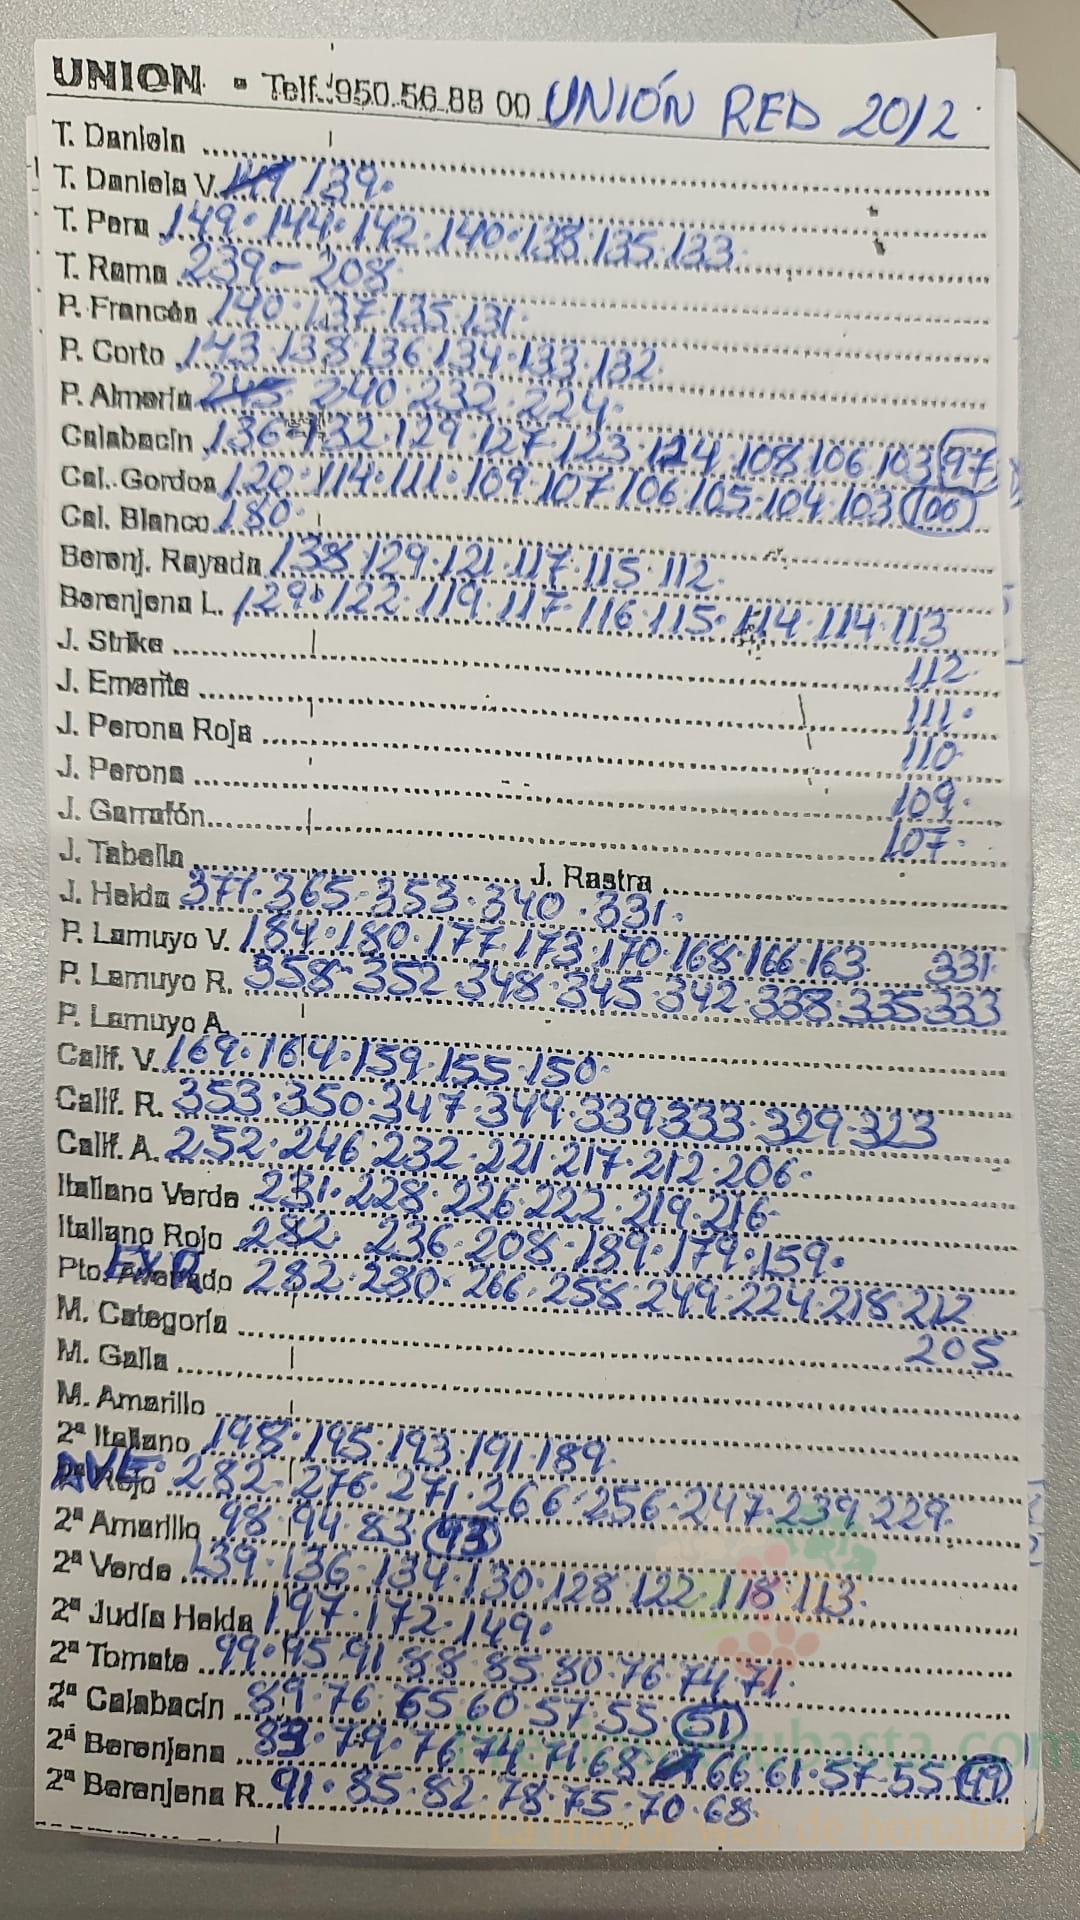 UNION - Telf.: 950.56.88 00 UNIÓN RED 20/2
T. Daniela
T. Daniela V. 139.
T. Pera 149. 144. 142. 140. 138. 135. 133.
T. Rama 239 - 208
P. Francés 140. 137. 135. 131.
P. Corto 143. 138. 136. 134. 133. 132.
P. Almería 245 240. 232. 224.
Calabacín 136. 132. 129. 127. 123. 124. 108. 106. 103 97
Cal. Gordos 120. 114. 111. 109. 107. 106. 105. 104. 103 100
Cal. Blanco 180.
Berenj. Rayada 138. 129. 121. 117. 115. 112.
Berenjena L. 129. 122. 119. 117. 116. 115. 114. 114. 113
J. Strike 112.
J. Emerite 111.
J. Perona Roja 110
J. Perona 109.
J. Garrafón 107.
J. Tabella J. Rastra
J. Helda 377. 365. 353. 340. 331.
P. Lamuyo V. 184. 180. 177. 173. 170. 168. 166. 163. 331.
P. Lamuyo R. 358. 352. 348. 345. 342. 338. 335. 333
P. Lamuyo A.
Calif. V. 169. 164. 159. 155. 150.
Calif. R. 353. 350. 347. 344. 339. 333. 329. 323
Calif. A. 252. 246. 232. 221. 217. 212. 206.
Italiano Verde 231. 228. 226. 222. 219. 216.
Italiano Rojo 282. 236. 208. 189. 179. 159.
Pto. 282. 280. 266. 258. 249. 224. 218. 212
M. Categoría 205
M. Galia
M. Amarillo
2ª Italiano 198. 195. 193. 191. 189.
2ª Rojo 282. 276. 271. 266. 256. 247. 239. 229.
2ª Amarillo 98. 94. 83. 93
2ª Verde 139. 136. 134. 130. 128. 122. 118. 113.
2ª Judía Helda 197. 172. 149.
2ª Tomate 99. 95. 91. 88. 85. 80. 76. 74. 71.
2ª Calabacín 89. 76. 65. 60. 57. 55. 51
2ª Berenjena 83. 79. 76. 74. 71. 68. 66. 61. 57. 55. 49
2ª Berenjena R. 91. 85. 82. 78. 75. 70. 68.
La mayor web de hortalizas